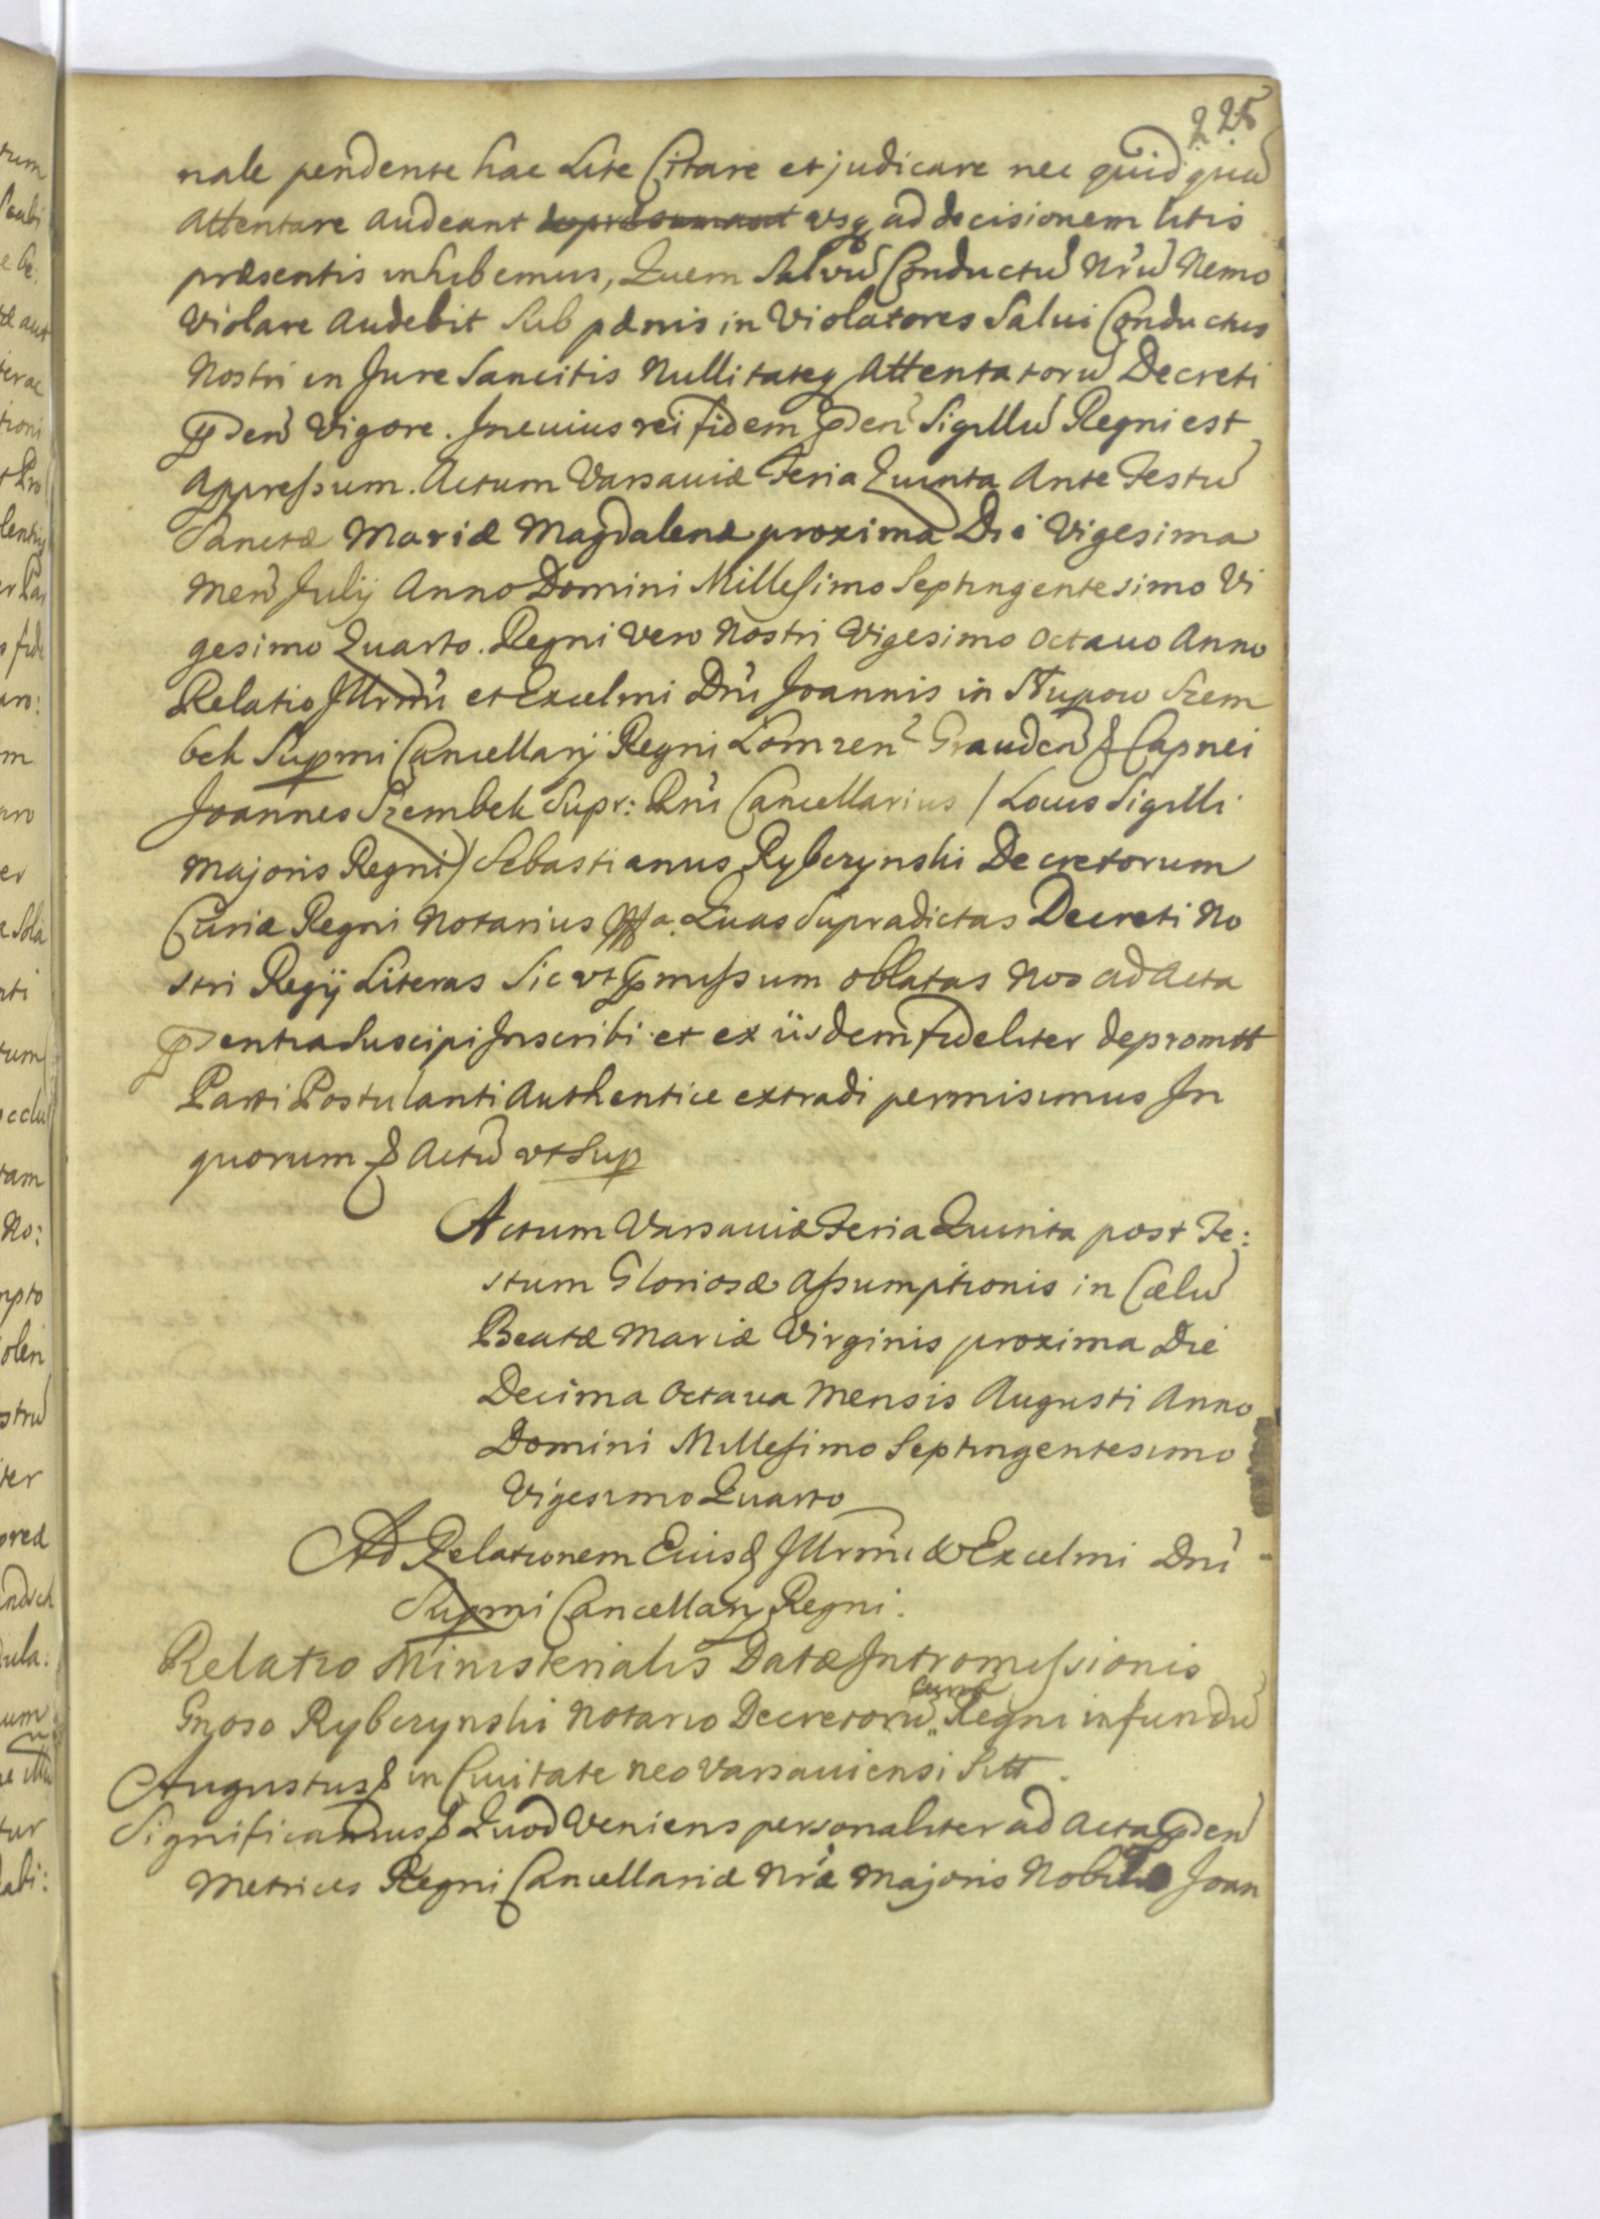 225
nale pendente hac Lite Citare et judicare nec quidquã
Attentare Audeant usq ad decisionem litis
præsentis inhibemus, Quem Salvũ Conductũ Nrũ Nemo
Violare Audebit Sub pœnis in Violatores Salui Conductus
Nostri in Jure Sancitis Nullitateq Attentatorũ Decreti
Pden̄ Vigore. In cuius rei fidem Pden̄ Sigillũ Regni est
Appressum. Actum Varsaviæ Feria Quinta Ante Festũ
Sanctæ Mariæ Magdalenæ proxima Die Vigesima
Men̄ Julij Anno Domini Millesimo Septingentesimo Vi
gesimo Quarto. Regni vero Nostri Vigesimo octauo Anno
Relatio Illrmi et Excelmi Dni Joannis in Słupow Szem
bek Supmi Cancellarij Regni Łomzen̄ Grauden̄ & Capnei
Joannes Szembek Supr: Rni Cancellarius / Locus Sigilli
Majoris Regni / Sebastianus Rybczynski Decretorum
Curiæ Regni Notarius Quas Supradictas Decreti No
stri Regij Literas Sic ut Pmissum oblatas Nos ad Acta
Pdentia Suscipi Inscribi et ex iisdem fideliter depromtt
Parti Postulanti Authentice extradi permisimus In
quorum & Actũ ut Sup
Actum Varsaviæ Feria Quinta post Fe:
stum Gloriosæ Assumptionis in Cælũ
Beatæ Mariæ Virginis proxima Die
Decima Octava Mensis Augusti Anno
Domini Millesimo Septingentesimo
Vigesimo Quarto
Ad Relationem Eiusd Illrmi & Excelmi Dni
Supmi Cancellarij Regni.
Relatio Ministerialis Datæ Intromissionis
Gnoso Rybczynski Notario Decretorũ Curiæ Regni in fundũ
Augustus & in Ciuitate Neo Varsaviensi Sitt.
Significamus & Quod Veniens personaliter ad Acta Pden̄
Metrices Regni Cancellariæ Nræ Majoris Nobilis Joan